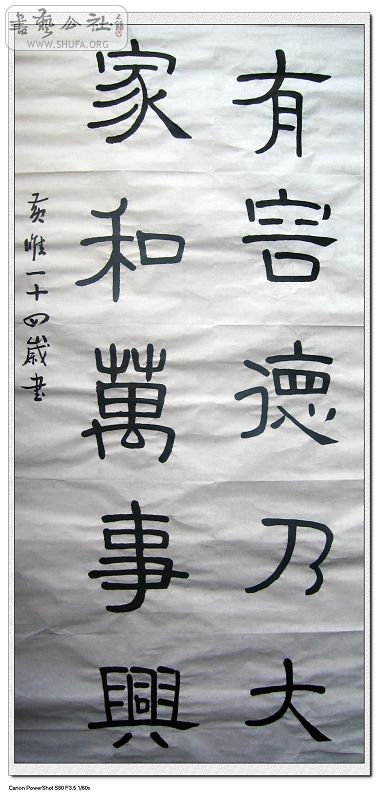 書藝公社
WWW.SHUFA.ORG
有容德乃大
家和萬事興
黃唯一十四歲書
Canon PowerShot S80 F3.5 1/60s